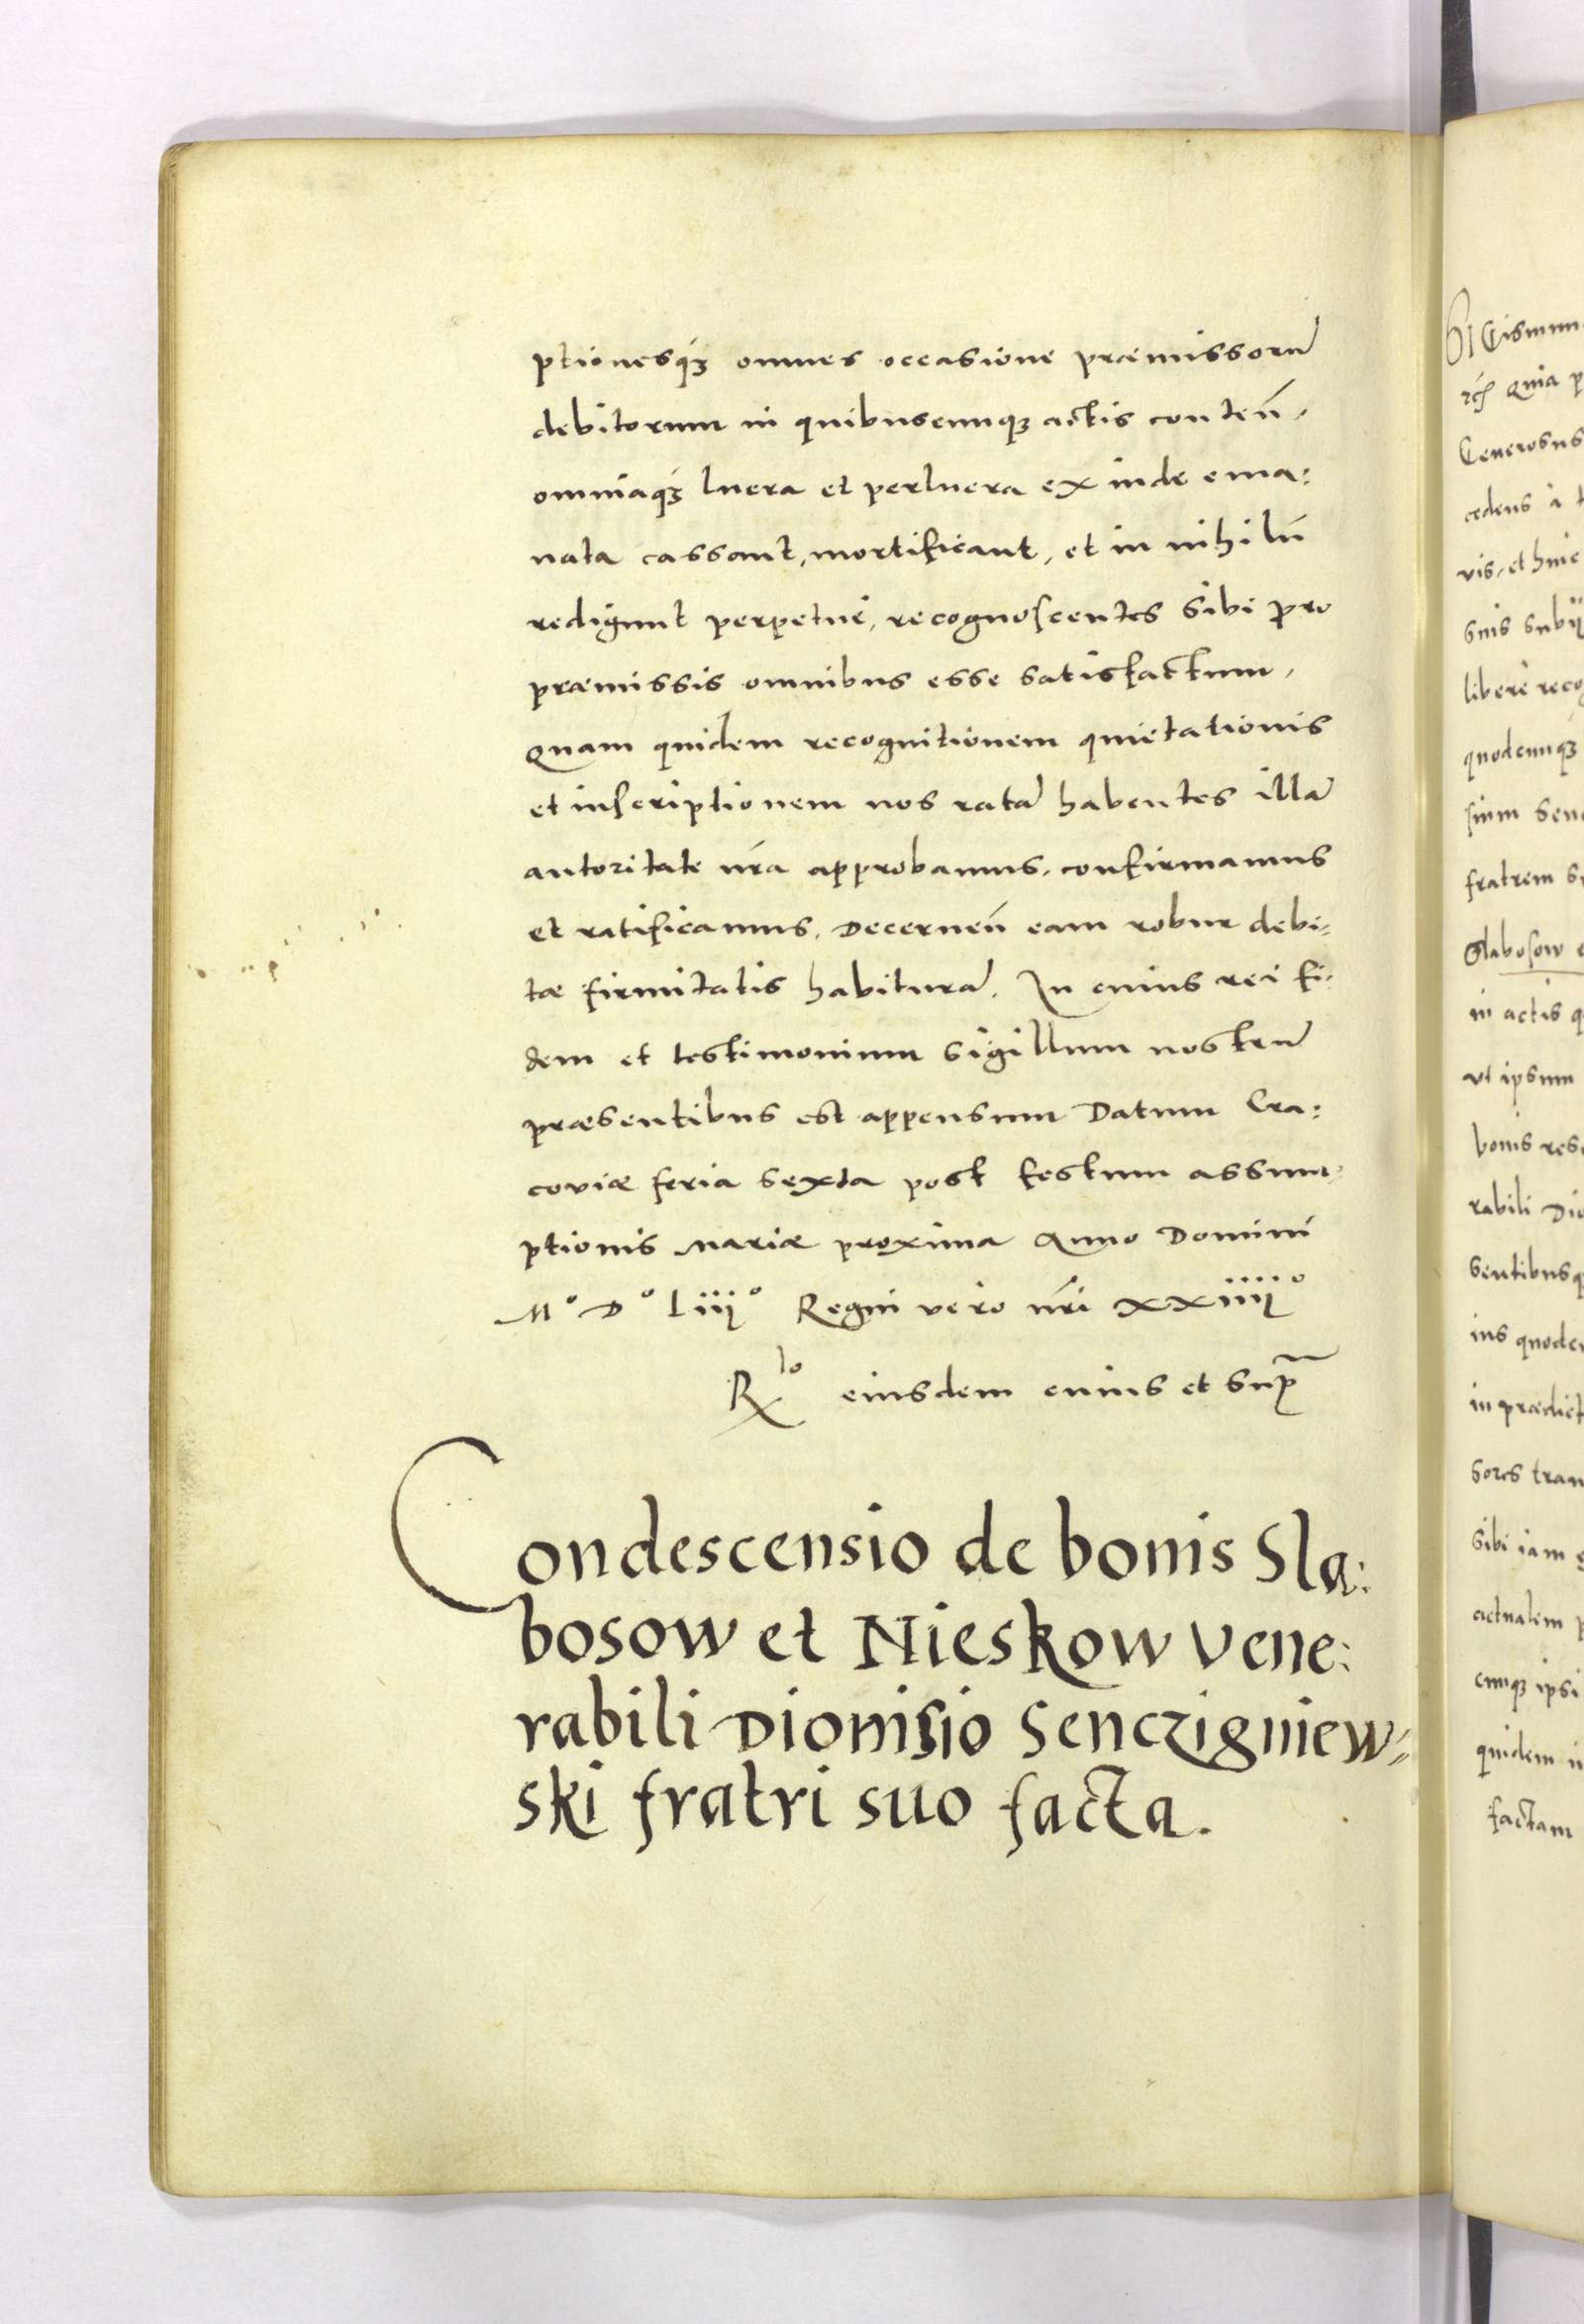 ptionesq́ꝫ omnes occasione præmissorũ
debitorum in quibuscumqꝫ actis conteñ.
omniaq́ꝫ lucra et perlucra ex inde ema:
nata cassant, mortificant, et in nihilũ
redigunt perpetuè, recognoscentes sibi pro
præmissis omnibus esse satisfactum.
Quam quidem recognitionem quietationis
et inscriptionem nos ratã habentes illã
autoritate nr̃a approbamus, confirmamus
et ratificamus. Decerneñ eam robur debi-
tæ firmitatis habiturã. In cuius rei fi-
dem et testimonium sigillum nostrũ
præsentibus est appensum Datum Cra:
coviæ feria sexta post festum assum-
ptionis Mariæ proxima Anno Domini
Mº Dº Liiiº Regni vero nr̃i xxiiiiº
Rlo eiusdem cuius et sup̃
Condescensio de bonis Sla:
bosow et Nieskow Vene:
rabili Dionisio Senczigniew=
ski fratri suo facta.
Gismun
Quia p
Generosus
cedens à t
vis, et huic
suis subii
liberè recog
quodcunqꝫ
fratrem s
Slabosow e
in actis q
vt ipsum
bonis res
rabili Dio
sentibusq
ius quodcu
in prædict
sores tran
sibi iam
actualem p
cunqꝫ ipsi
quidem
factam